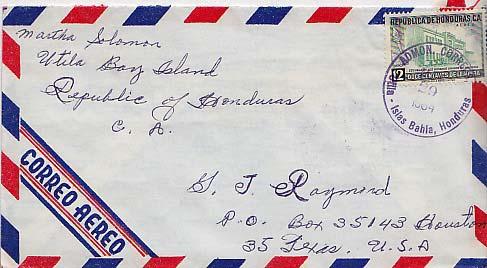 Martha Solomon
Utila Bay Island
Republic of Honduras
C. A.
REPUBLICA DE HONDURAS C.A.
AEREO
12 DOCE CENTAVOS DE LEMPIRA
ADMON. CORREOS
Utila - Islas Bahia, Honduras
1964
CORREO AEREO
G. T. Raymond
P.O. Box 35143 Houston
35 Texas. U.S.A